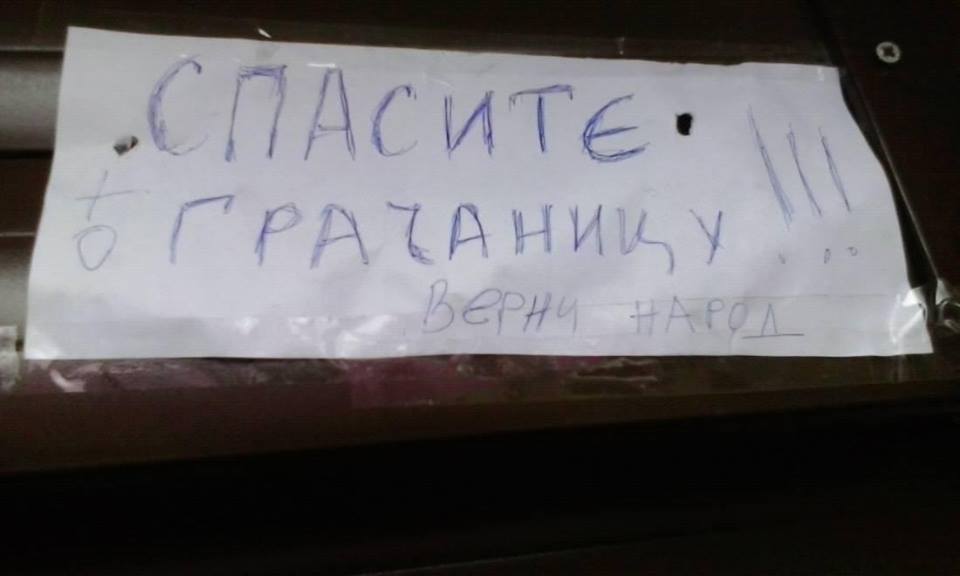 СПАСИТЕ
ГРАЧАНИЦУ!!!
ВЕРНИ НАРОД